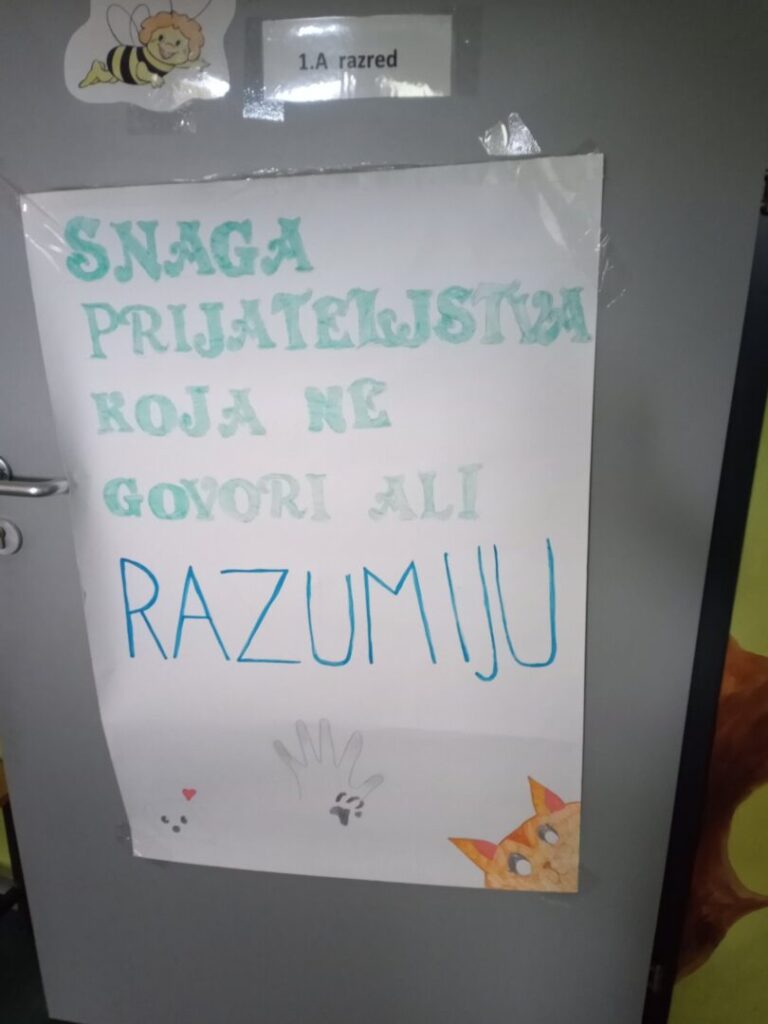 1.A razred
SNAGA
PRIJATELJSTVA
KOJA NE
GOVORI ALI
RAZUMIJU